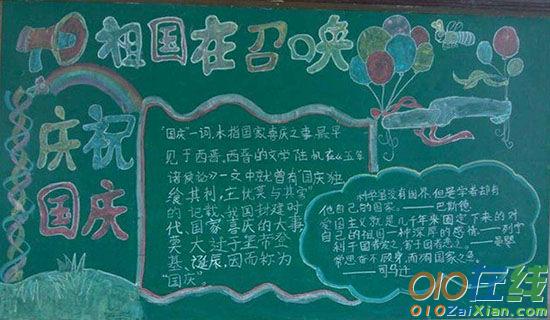 祖国在召唤
庆祝
国庆
"国庆"一词,本指国家喜庆之事,最早
见于西晋。西晋的文学陆机在《五等
诸侯论》一文中就曾有"国庆独
飨其利,主忧莫与其害"
的记载、我国封建时
代、国家喜庆的大事
莫大过于皇帝登
基、诞辰,因而称为
"国庆"。
科学虽没有国界,但是学者却有
他自己的国家。——巴斯德
爱国主义就是几千年来固定下来的对
自己的祖国一种深厚的感情。——列宁
利于国者爱之,害于国者恶之。——晏婴
常思奋不顾身,而殉国家之急。
——司马迁
010在线
010ZaiXian.com